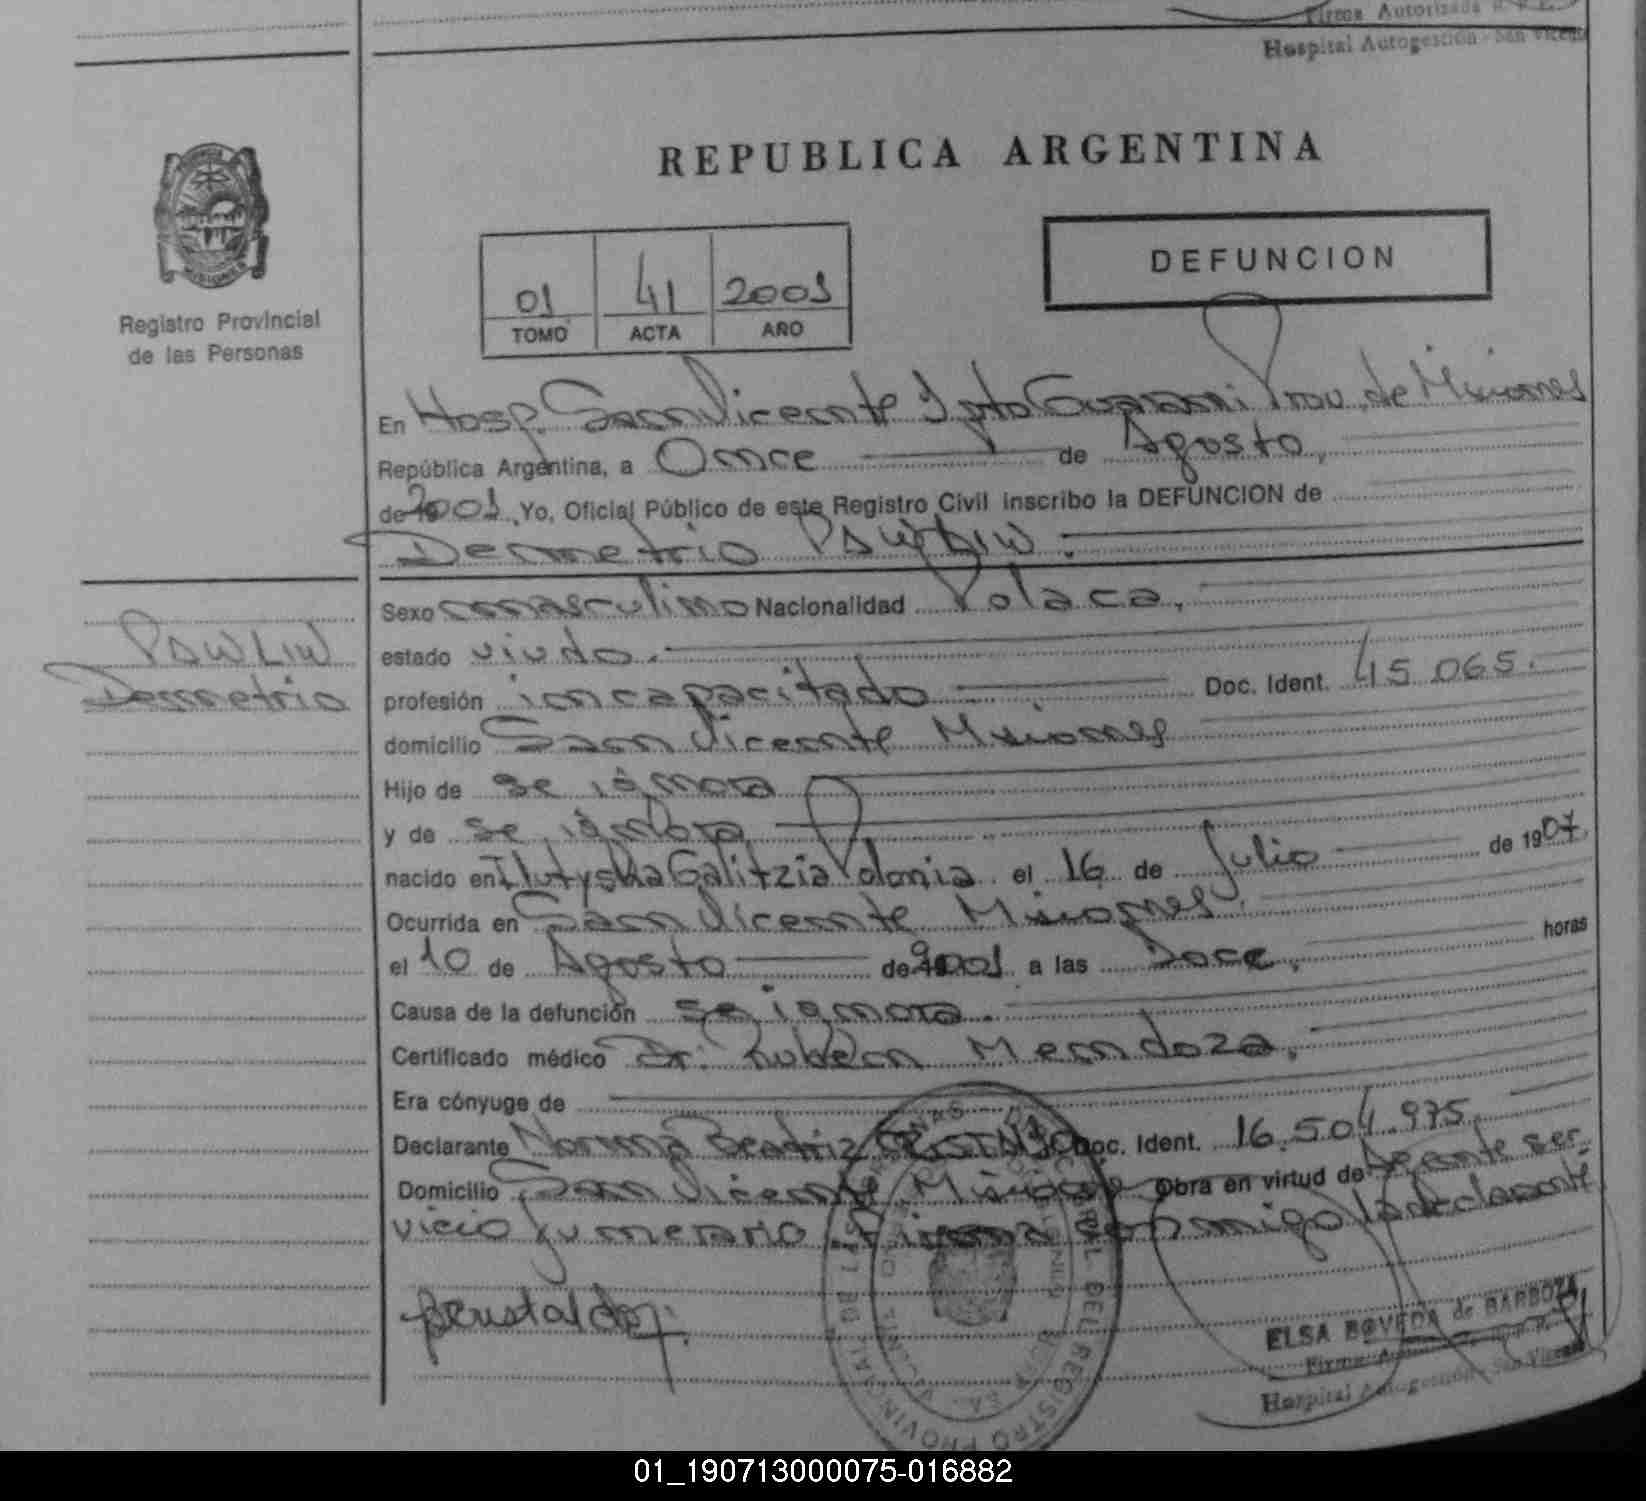 Firma Autorizada R. P. P.
Hospital Autogestión - San Vicente
REPUBLICA ARGENTINA
MISIONES
Registro Provincial
de las Personas
01 41 2001
TOMO ACTA AÑO
DEFUNCION
En Hosp. San Vicente Dpto Guaraní Prov. de Misiones
República Argentina, a Once de Agosto,
de 2001, Yo, Oficial Público de este Registro Civil inscribo la DEFUNCION de
Demetrio PAWLIW.
PAWLIW
Demetrio
Sexo masculino Nacionalidad Polaca,
estado viudo.
profesión incapacitado Doc. Ident. 45.065.
domicilio San Vicente Misiones
Hijo de se ignora
y de se ignora
nacido en Ilutyska Galitzia Polonia el 16 de Julio de 1907,
Ocurrida en San Vicente Misiones,
el 10 de Agosto de 2001 a las Doce, horas
Causa de la defunción se ignora.
Certificado médico Dr. Ruben Mendoza,
Era cónyuge de
Declarante Norma Beatriz Doc. Ident. 16.504.975.
Domicilio San Vicente Misiones Obra en virtud de Agente ser-
vicio fumerario. Firma conmigo la declarante
ELSA BOVEDA de BARBOZA
Firma
Hospital Autogestión - San Vicente
01_190713000075-016882